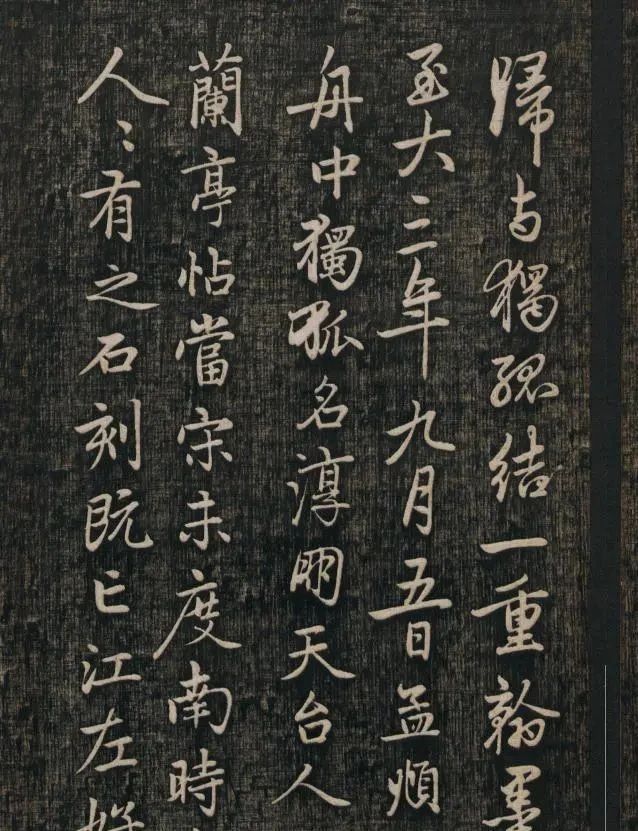 歸与獨孤結一重翰墨
至大三年九月五日孟頫
舟中獨孤名淳朋天台人
蘭亭帖當宋未度南時
人〻有之石刻既亡江左好